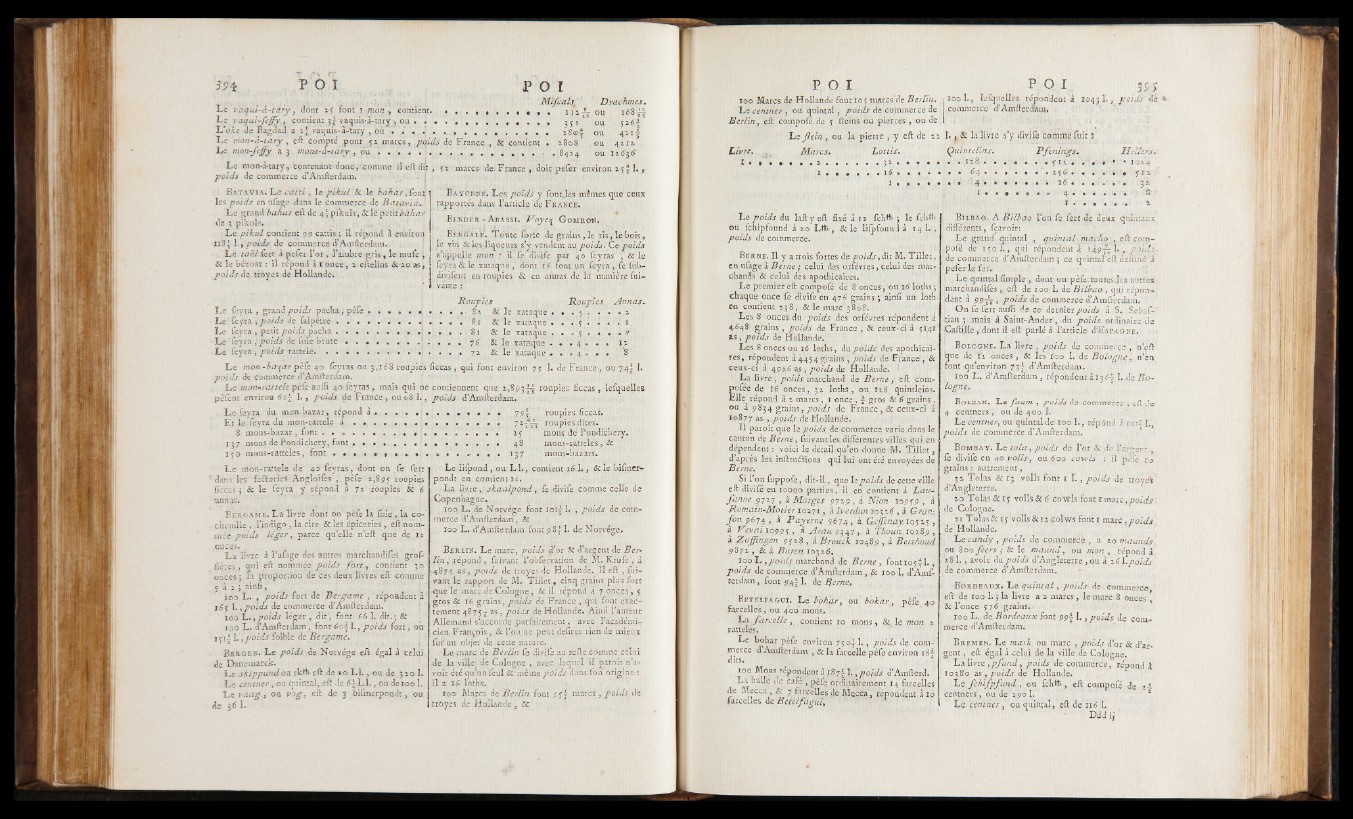 394 POI POI
Miscals. Drachmes.
Le vaqui-à-tary, dont 25 font 1 mon, contient. . . . . . . . . . . 112 ou 168
Le vaqui-sessy, contient 3⅛ vaquis-à-tary, ou . . . . . . . . . . 351 ou 526
L'oke de Bagdad a 2½ vaquis-à-tary, ou . . . . . . . . . . ou 421
Le mon-à-tary, est compté pour 52 marcs, poids de France, & contient . 2808 ou 4212
Le mon-sessy a 3 mons-à-tary, ou . . . . . . . . . . 8424 ou 12636
Le mon-à-tary, contenant donc, comme il est dit, 52 marcs de France, doit peser environ 25 l.,
poids de commerce d'Amsterdam.
BATAVIA. Le catti, le pikul & le bahar, sont
les poids en usage dans le commerce de Batavia.
Le grand bahar est de 4½ pikuls, & le petit bahar
de 3 pikuls.
Le pikul contient 99 cattis; il répond à environ
118 l., poids de commerce d'Amsterdam.
Le taël sert à peser l'or, l'ambre gris, le musc,
& le bézoar : il répond à 1 once, 2 estelins & 20 as,
poids de troyes de Hollande.
BAYONNE. Les poids y sont les mêmes que ceux
rapportés dans l'article de FRANCE.
BENDER-ABASSI. Voyez GOMRON.
BENGALE. Toute sorte de grains, le ris, le bois,
le vin & les liqueurs s'y vendent au poids. Ce poids
s'appelle mon : il se divise par 40 seyras, & le
seyra & le xataque, dont 16 font un seyra, se sub-
divisent en roupies & en annas de la manière sui-
vante :
Roupies Roupies Annas.
Le seyra, grand poids pacha, pèse . . . . 82 & le xataque . . . 5 . . . . 2
Le seyra, poids de salpêtre . . . . 81 & le xataque . . . 5 . . . . 1
Le seyra, petit poids pacha . . . . 80 & le xataque . . . 5 . . . .
Le seyra, poids de soie brute . . . . 76 & le xataque . . . 4 . . . . 12
Le seyra, poids rattele. . . . . 72 & le xataque . . . 4 . . . . 8
Le mon-bazar pèse 40 seyras ou 3,168 roupies siccas, qui font environ 75 l. de France, ou 74½ l.
poids de commerce d'Amsterdam.
Le mon-rattele pèse aussi 40 seyras, mais qui ne contiennent que 2,893 roupies siccas, lesquelles
pèsent environ 68 l., poids de France, ou 68 l., poids d'Amsterdam.
Le seyra du mon bazar, répond à . . . . 79⅕ roupies siccas.
Et le seyra du mon-rattele à . . . . 72 roupies dites.
8 mons-bazar, font . . . . 15 mons de Pondichery.
137 mons de Pondichery, font . . . . 48 mons-ratteles, &
150 mons-ratteles, font . . . . 137 mons-bazars.
Le mon-rattele de 40 seyras, dont on se sert
dans les factories Angloises, pèse 2,895 roupies
siccas; & le seyra y répond à 72 roupies & 6
annas.
BERGAME. La livre dont on pèse la soie, la co-
chenille, l'indigo, la cire & les épiceries, est nom-
mée poids léger, parce qu'elle n'est que de 12
onces.
La livre à l'usage des autres marchandises gros-
sières, qui est nommée poids fort, contient 30
onces; la proportion de ces deux livres est comme
5 à 2; ainsi,
100 L., poids fort de Bergame, répondent à
165 l., poids de commerce d'Amsterdam.
100 L., poids léger, dit, font 66 l. dit.; &
100 L. d'Amsterdam, font 60 l., poids fort, ou
151½ l., poids foible de Bergame.
BERGEN. Le poids de Norvége est égal à celui
de Danemarck.
Le skippund ou sk℔ est de 20 L.l., ou de 320 l.
Le centner, ou quintal, est de 6¼ L.l., ou de 100 l.
Le vaag, ou vog, est de 3 bismerpondt, ou
de 36 l.
Le lifpond, ou L.l., contient 16 l.; & le bismer-
pondt en contient 12.
La livre, skaalpond, se divise comme celle de
Copenhague.
100 L. de Norvége font 101¼ l., poids de com-
merce d'Amsterdam, &
100 L. d'Amsterdam font 98¾ l. de Norvége.
BERLIN. Le marc, poids d'or & d'argent de Ber-
lin, répond, suivant l'observation de M. Kruse, à
4874 as, poids de troyes de Hollande. Il est, sui-
vant le rapport de M. Tillet, cinq grains plus fort
que le marc de Cologne, & il répond à 7 onces, 5
gros & 16 grains, poids de France, qui font exac-
tement 4875 as, poids de Hollande. Ainsi l'auteur
Allemand s'accorde parfaitement, avec l'académi-
cien François, & l'on ne peut désirer rien de mieux
sur un objet de cette nature.
Le marc de Berlin se divise au reste comme celui
de la ville de Cologne, avec lequel il paroît n'a-
voir été qu'un seul & même poids dans son origine :
il a 16 loths.
100 Marcs de Berlin font 95¼ marcs, poids de
troyes de Hollande, &
POI POI 395
100 Marcs de Hollande font 105 marcs de Berlin.
Le centner, ou quintal, poids de commerce de
Berlin, est composé de 5 steins ou pierres, ou de
100 l., lesquelles répondent à 104 l., poids de
commerce d'Amsterdam.
Le stein, ou la pierre, y est de 22 l., & la livre s'y divise comme suit :
Livre. Marcs. Lottis. Quintelins. Pfenings. Hellers.
1 . . . . 2 . . . . 32 . . . . 128 . . . . 512 . . . . 1024
1 . . . . 16 . . . . 64 . . . . 256 . . . . 512
1 . . . . 4 . . . . 16 . . . . 32
1 . . . . 4 . . . . 8
1 . . . . 2
Le poids du last y est fixé à 12 sch℔; le sch℔
ou schipfound à 20 L℔, & le lifpfound à 14 l.,
poids de commerce.
BERNE. Il y a trois sortes de poids, dit M. Tillet,
en usage à Berne; celui des orfévres, celui des mar-
chands & celui des apothicaires.
Le premier est composé de 8 onces, ou 16 loths;
chaque once se divise en 476 grains; ainsi un loth
en contient 238, & le marc 3808.
Les 8 onces du poids des orfévres répondent à
4648 grains, poids de France, & ceux-ci à 5141
as, poids de Hollande.
Les 8 onces ou 16 loths, du poids des apothicai-
res, répondent à 4454 grains, poids de France, &
ceux-ci à 4926 as, poids de Hollande.
La livre, poids marchand de Berne, est com-
posée de 16 onces, 32 loths, ou 128 quintleins.
Elle répond à 2 marcs, 1 once, gros & 6 grains,
ou à 9834 grains, poids de France, & ceux-ci à
10877 as, poids de Hollande.
Il paroît que le poids de commerce varie dans le
canton de Berne, suivant les différentes villes qui en
dépendent : voici le détail qu'en donne M. Tillet,
d'après les instructions qui lui ont été envoyées de
Berne.
Si l'on suppose, dit-il, que le poids de cette ville
est divisé en 10000 parties, il en contient à Lau-
sanne 9727, à Morges 9729, à Nion 10959, à
Romain-Motier 10271, à Iverdun 10326, à Gran-
son 9674, à Payerne 9674, à Gessenay 10525,
à Vevai 10995, à Arau 9347, à Thoun 10189,
à Zoffingen 9528, à Brouck 10489, à Berthoud
9872, & à Buren 10326.
100 L., poids marchand de Berne, font 105¾ l.,
poids de commerce d'Amsterdam, & 100 l. d'Ams-
terdam, font 94½ l. de Berne,
BETELFAGUI. Le bohar, ou bokar, pèse 40
farcelles, ou 400 mons.
La farcelle, contient 10 mons, & le mon 2
ratteles.
Le bohar pèse environ 750 l., poids de com-
merce d'Amsterdam, & la farcelle pèse environ 18¾
dits.
100 Mons répondent à 187½ l., poids d'Amsterd.
La balle de café, pèse ordinairement 14 farcelles
de Mecca, & 7 farcelles de Mecca, répondent à 10
farcelles de Betelfagui.
BILBAO. A Bilbao l'on se sert de deux quintaux
différents, sçavoir:
Le grand quintal, quintal macho, est com-
posé de 150 l., qui répondent à 149 l., poids
de commerce d'Amsterdam; ce quintal est destiné à
peser le fer.
Le quintal simple, dont on pèse toutes les autres
marchandises, est de 100 l. de Bilbao, qui répon-
dent à 99 l., poids de commerce d'Amsterdam.
On se sert aussi de ce dernier poids à S. Sébas-
tian; mais à Saint-Ander, du poids ordinaire de
Castille, dont il est parlé à l'article d'ESPAGNE.
BOLOGNE. La livre, poids de commerce, n'est
que de 12 onces, & les 100 l. de Bologne, n'en
font qu'environ 73½ d'Amsterdam.
100 L. d'Amsterdam, répondent à 136 l. de Bo-
logne.
BOLZAN. Le saum, poids de commerce, est de
4 centners, ou de 400 l.
Le centner, ou quintal de 100 l., répond à 101 l.,
poids de commerce d'Amsterdam.
BOMBAY. Le tola, poids de l'or & de l'argent,
se divise en 40 volls, ou 600 cowls : il pèse 10
grains : autrement,
32 Tolas & 13 volls font 1 l., poids de troyes
d'Angleterre.
20 Tolas & 15 volls & 6 cowls font 1 marc, poids
de Cologne.
21 Tolas & 15 volls & 12 colws font 1 marc, poids
de Hollande.
Le candy, poids de commerce, a 20 maunds
ou 800 seers; & le maund, ou mon, répond à
28 l., avoir du poids d'Angleterre, ou à 26 l. poids
de commerce d'Amsterdam.
BORDEAUX. Le quintal, poids de commerce,
est de 100 l.; la livre a 2 marcs, le marc 8 onces,
& l'once 576 grains.
100 L. de Bordeaux font 99 l., poids de com-
merce d'Amsterdam.
BREMEN. Le mark ou marc, poids d'or & d'ar-
gent, est égal à celui de la ville de Cologne.
La livre, pfund, poids de commerce, répond à
10380 as, poids de Hollande.
Le schifpfund, ou sch℔, est composé de 2½
centners, ou de 290 l.
Le centner, ou quintal, est de 116 l.
Ddd ij